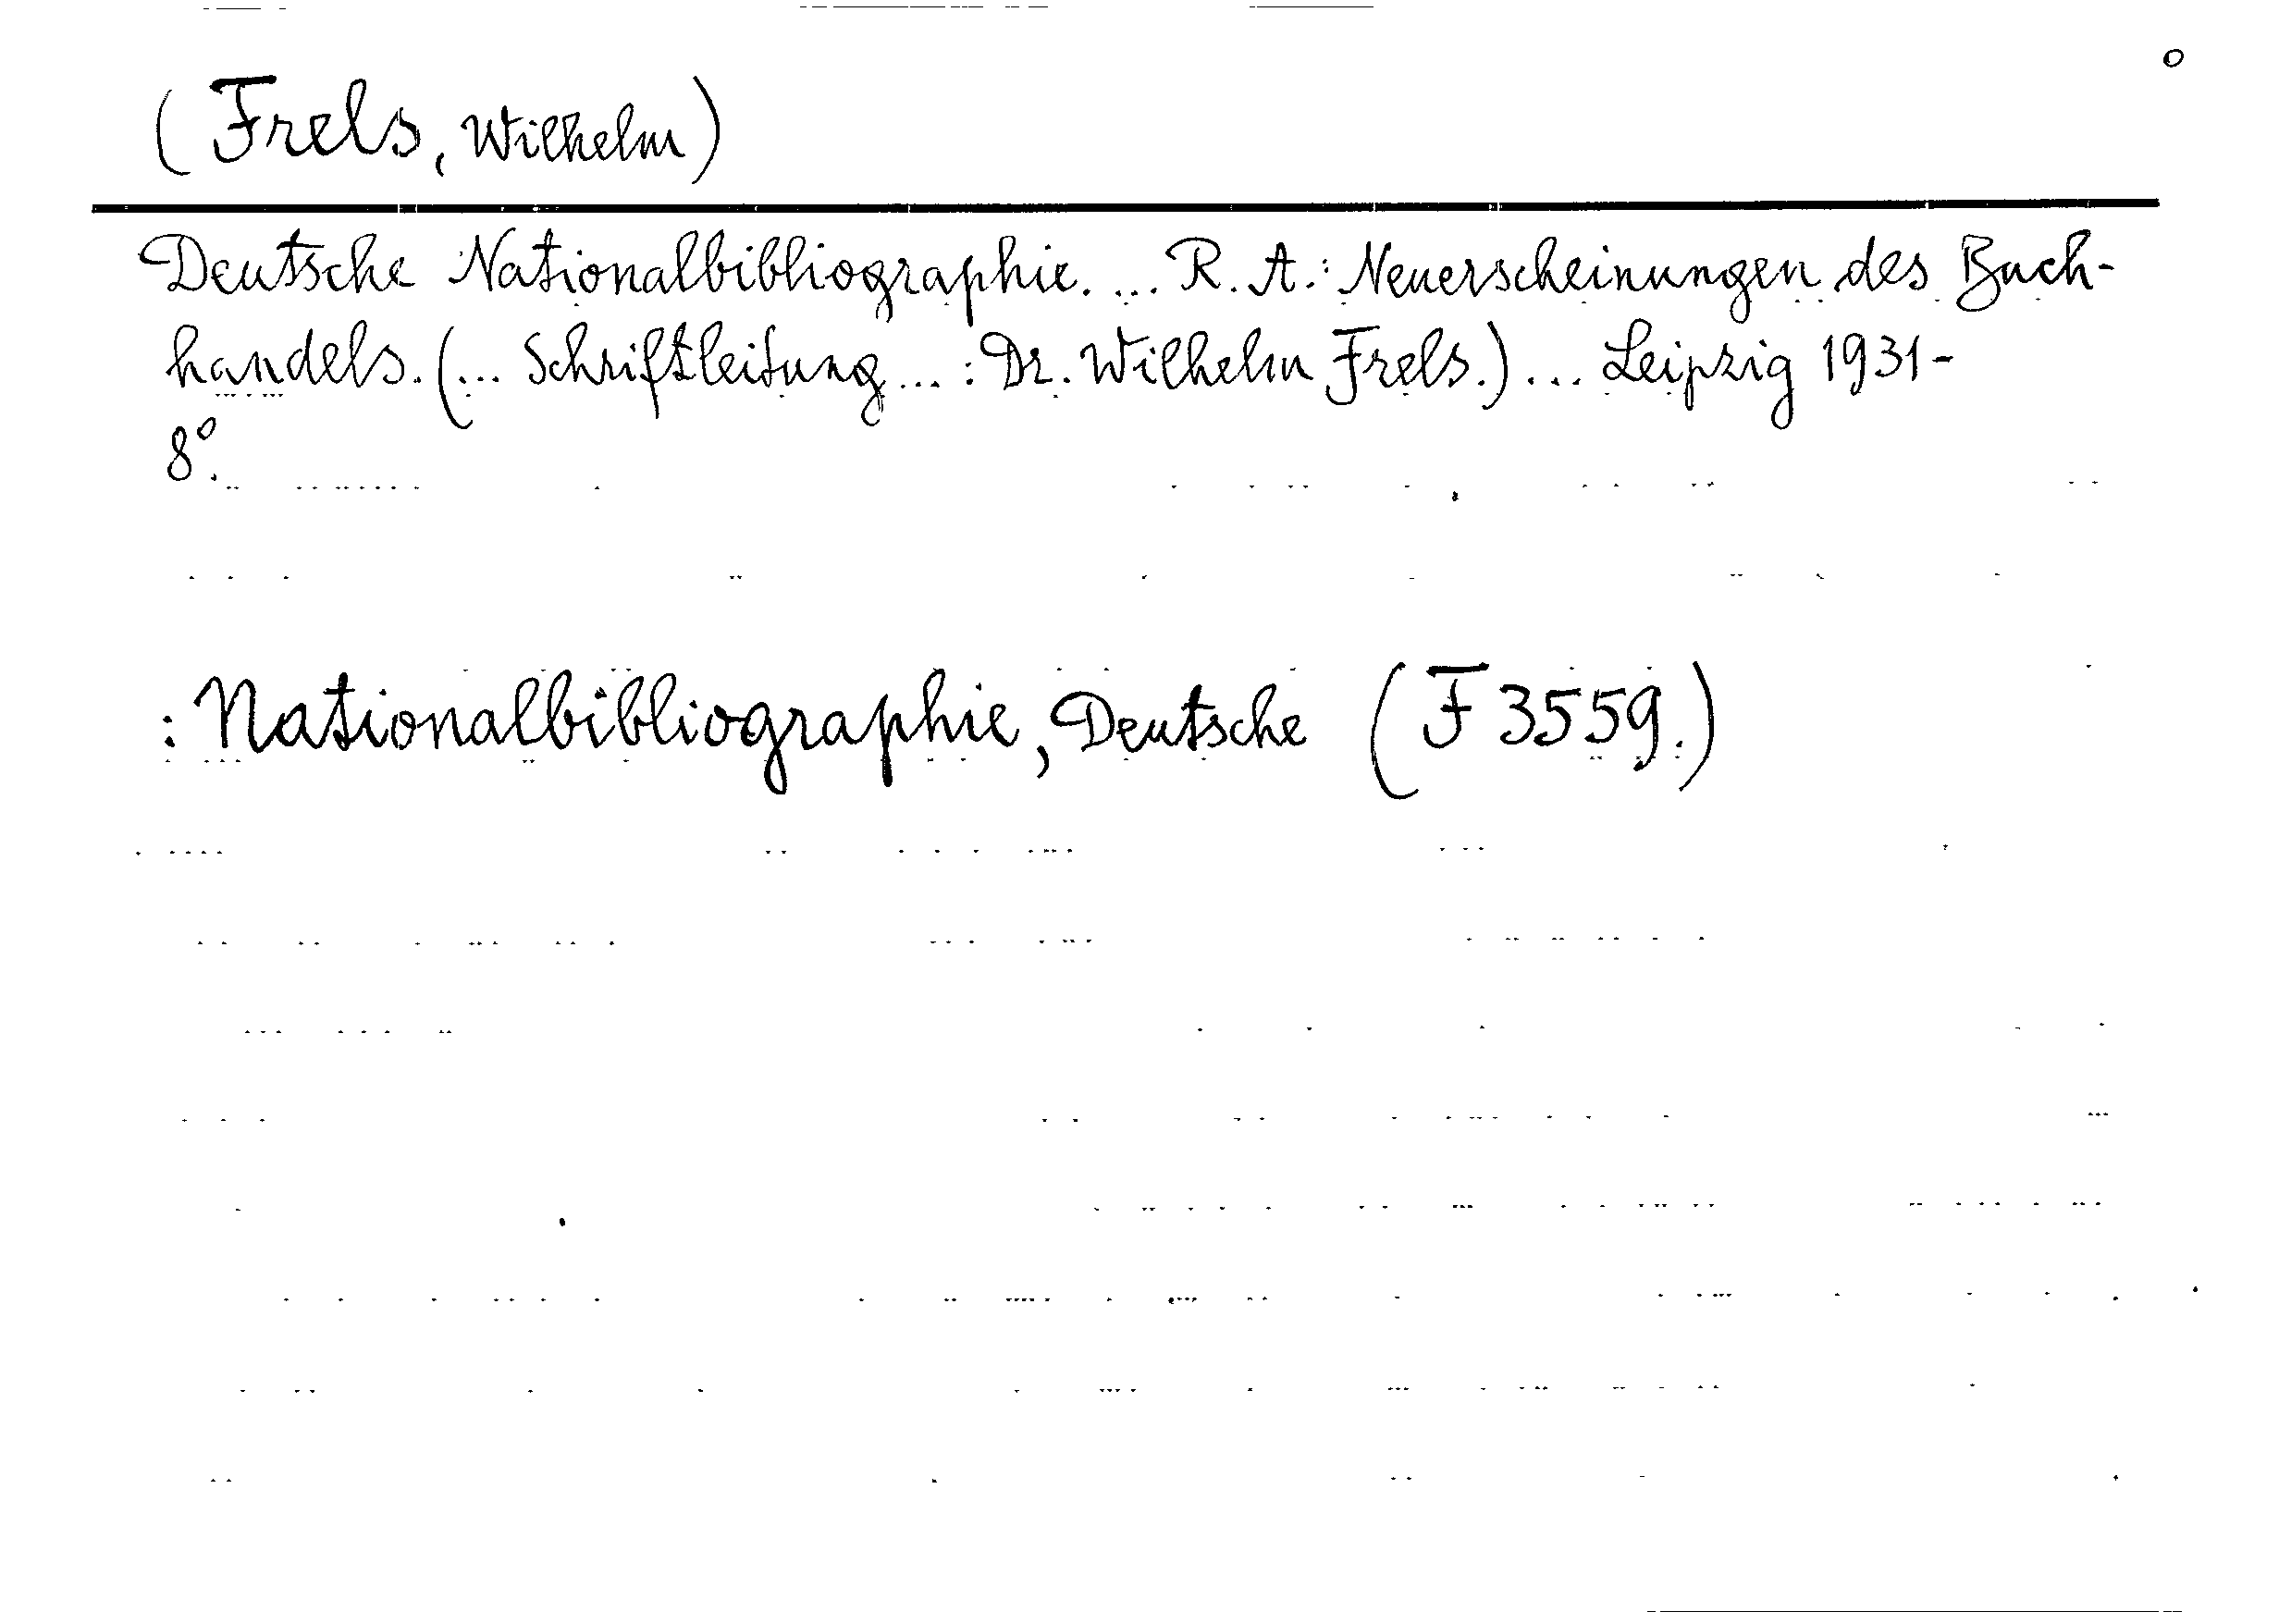 o
(Frels, Wilhelm)
Deutsche Nationalbibliographie. ... R. A.: Neuerscheinungen des Buch-
handels. (... Schriftleitung ... : Dr. Wilhelm Frels.) ... Leipzig 1931-
8°.
: Nationalbibliographie, Deutsche (F 3559.)